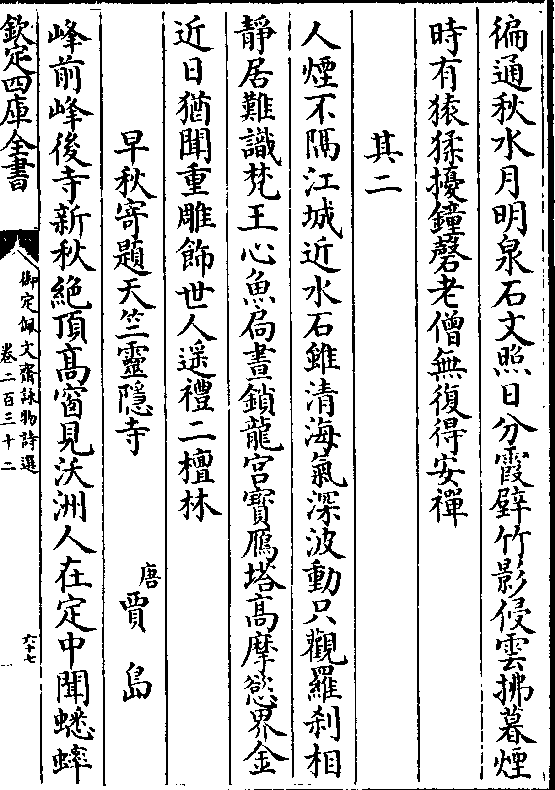 徧通秋水月明泉石文照日分霞壁竹影侵雲拂暮煙
時有猿猱擾鐘磬老僧無復得安禪
其二
人煙不隔江城近水石雖清海氣深波動只觀羅刹相
靜居難識梵王心魚扃晝鎖龍宮寶鴈塔高摩慾界金
近日猶聞重雕飾世人遥禮二檀林
早秋寄題天竺靈隱寺
唐 賈島
峰前峰後寺新秋絶頂髙窗見沃洲人在定中聞蟋蟀
欽定四庫全書
御定佩文齋詠物詩選
卷二百三十二
六十七